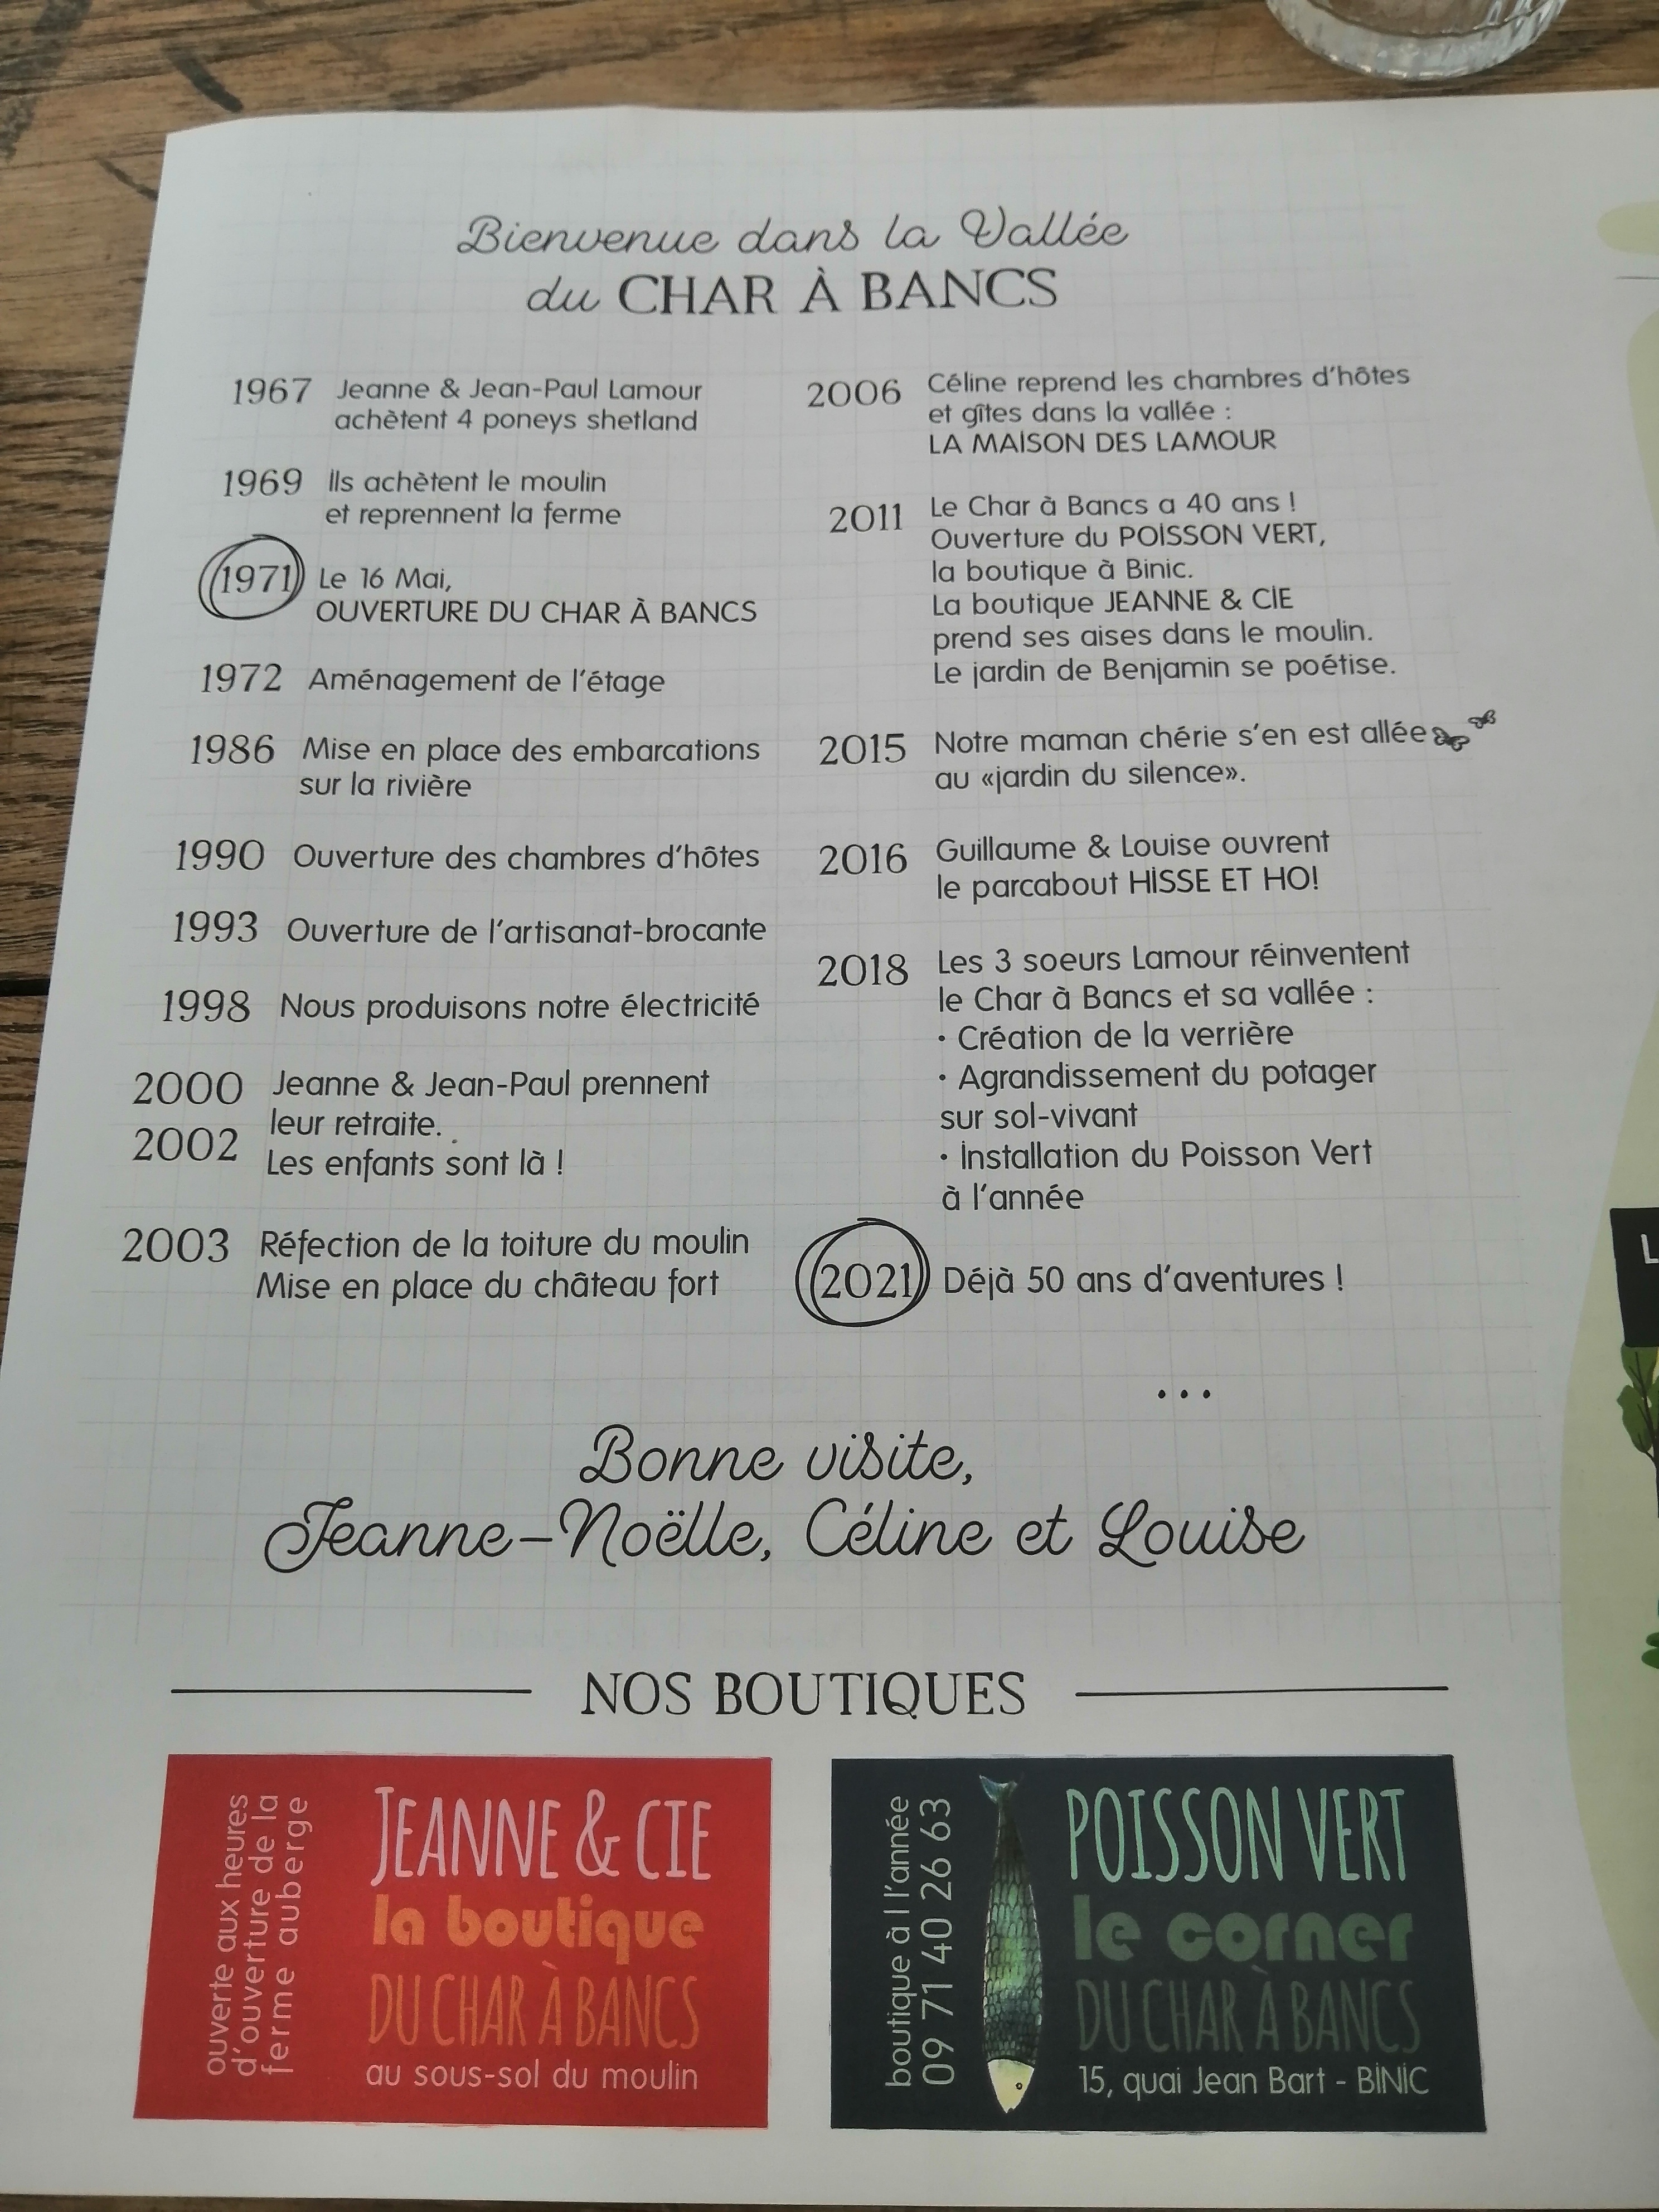 Bienvenue dans la Vallée
du CHAR À BANCS
1967 Jeanne & Jean-Paul Lamour
achètent 4 poneys shetland
1969 Ils achètent le moulin
et reprennent la ferme
1971 Le 16 Mai,
OUVERTURE DU CHAR À BANCS
1972 Aménagement de l'étage
1986 Mise en place des embarcations
sur la rivière
1990 Ouverture des chambres d'hôtes
1993 Ouverture de l'artisanat-brocante
1998 Nous produisons notre électricité
2000 Jeanne & Jean-Paul prennent
leur retraite.
2002 Les enfants sont là !
2003 Réfection de la toiture du moulin
Mise en place du château fort
2006 Céline reprend les chambres d'hôtes
et gîtes dans la vallée :
LA MAISON DES LAMOUR
2011 Le Char à Bancs a 40 ans !
Ouverture du POISSON VERT,
la boutique à Binic.
La boutique JEANNE & CIE
prend ses aises dans le moulin.
Le jardin de Benjamin se poétise.
2015 Notre maman chérie s'en est allée
au «jardin du silence».
2016 Guillaume & Louise ouvrent
le parcabout HISSE ET HO!
2018 Les 3 soeurs Lamour réinventent
le Char à Bancs et sa vallée :
• Création de la verrière
• Agrandissement du potager
sur sol-vivant
• Installation du Poisson Vert
à l'année
2021 Déjà 50 ans d'aventures !
...
Bonne visite,
Jeanne-Noëlle, Céline et Louise
NOS BOUTIQUES
ouverte aux heures
d'ouverture de la
ferme auberge
JEANNE & CIE
la boutique
DU CHAR À BANCS
au sous-sol du moulin
boutique à l l'année
09 71 40 26 63
POISSON VERT
le corner
DU CHAR À BANCS
15, quai Jean Bart - BINIC
L